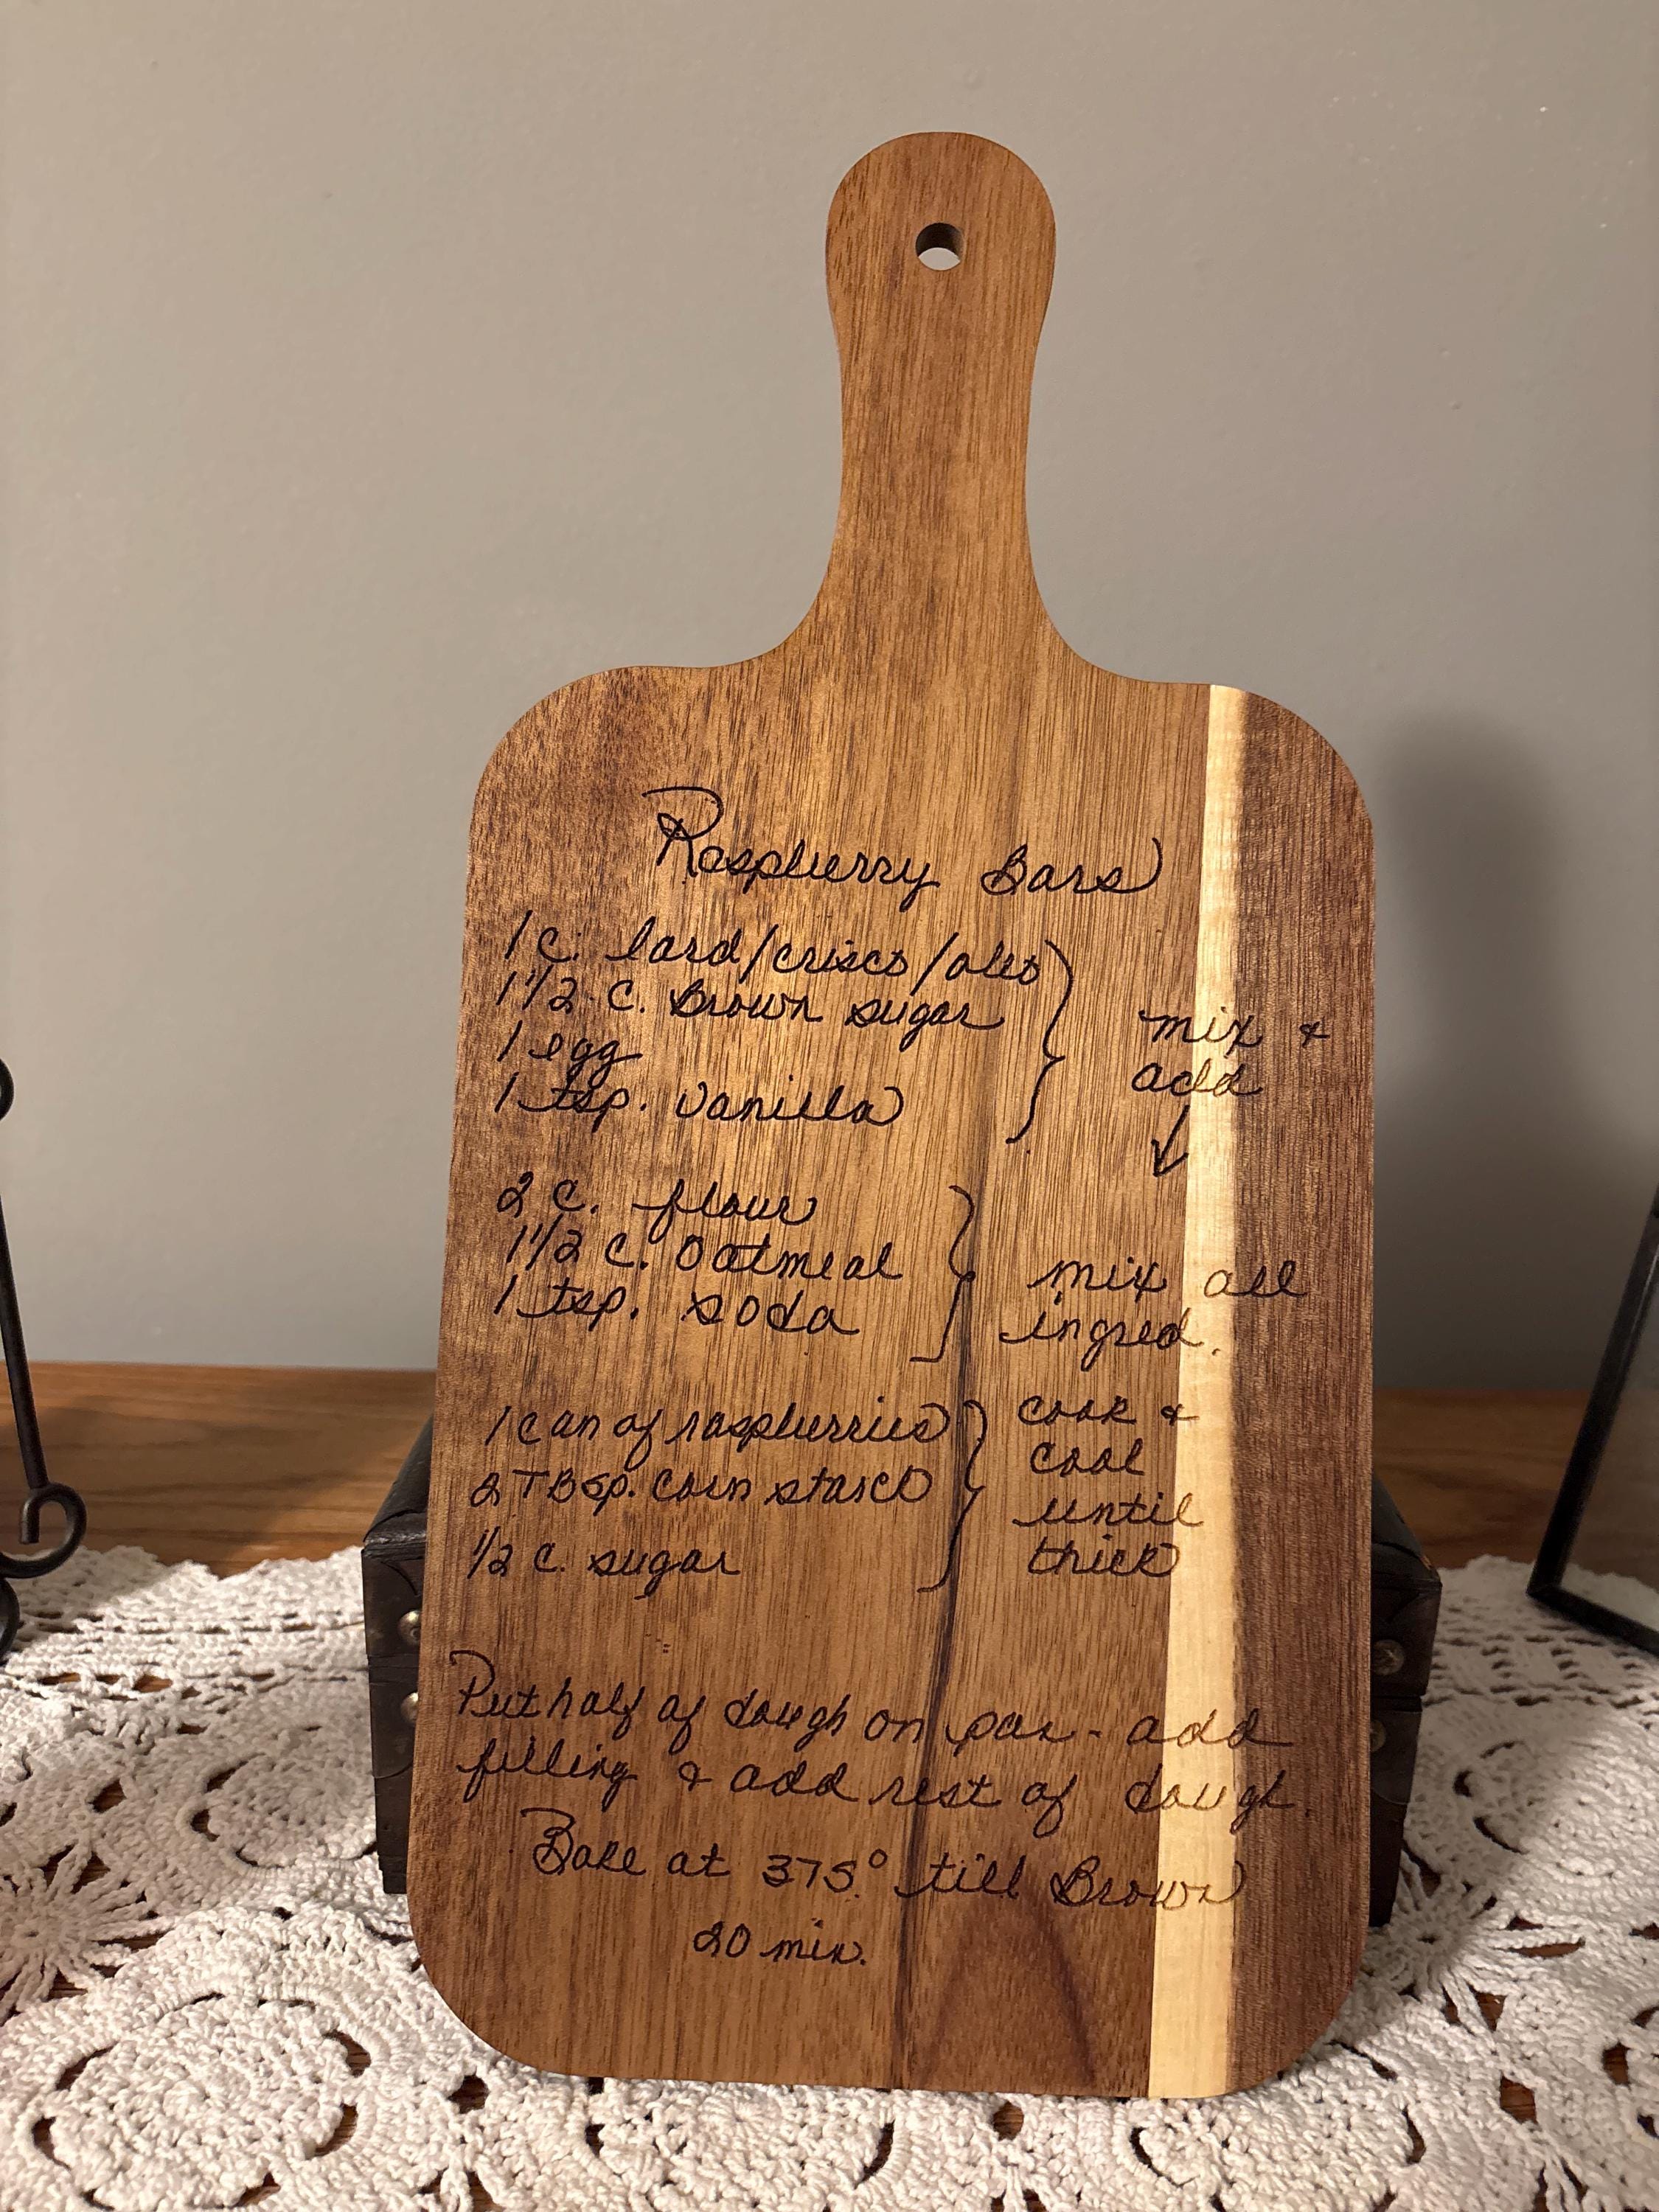 Raspberry Bars
1 c. lard/crisco/oleo
1 1/2 c. Brown sugar
1 egg
1 tsp. Vanilla
mix &
add
2 c. flour
1 1/2 c. Oatmeal
1 tsp. soda
mix all
ingred.
1 can of raspberries
2 TBsp. Corn starch
1/2 c. sugar
cook &
cool
until
thick
Put half of dough on pan - add
filling & add rest of dough.
Bake at 375° till Brown
20 min.